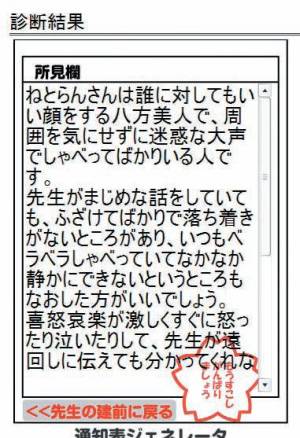 診断結果
所見欄
ねとらんさんは誰に対してもい
い顔をする八方美人で、周
囲を気にせずに迷惑な大声
でしゃべってばかりいる人で
す。
先生がまじめな話をしていて
も、ふざけてばかりで落ち着き
がないところがあり、いつもベ
ラベラしゃべっていてなかなか
静かにできないというところも
なおした方がいいでしょう。
喜怒哀楽が激しくすぐに怒っ
たり泣いたりして、先生が遠
回しに伝えても分かってくれな
もうすこし
がんばり
ましょう
<<先生の建前に戻る
通知表ジェネレータ